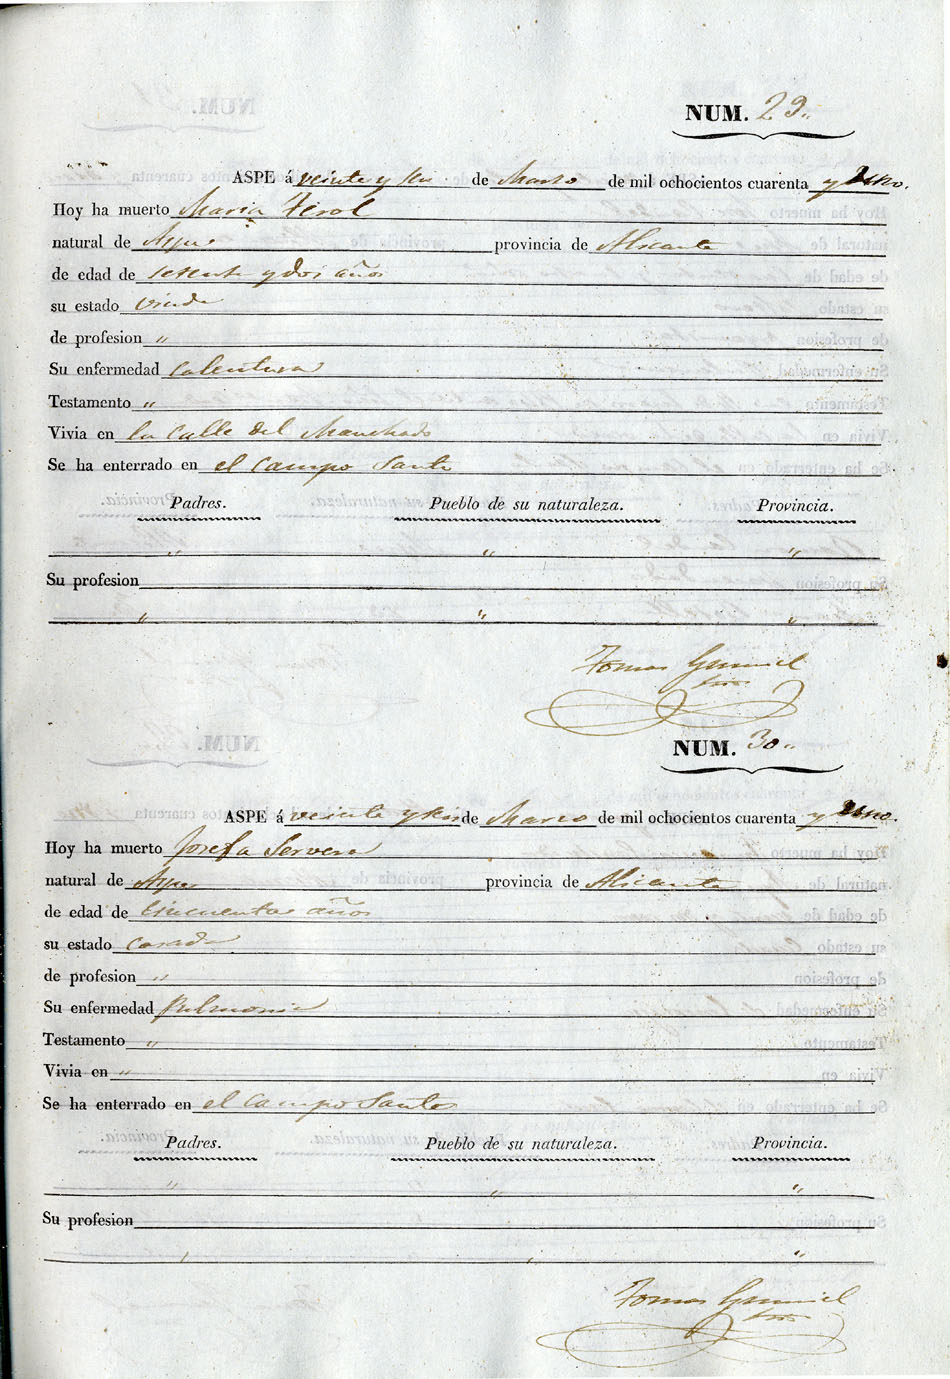 NUM. 29,,
ASPE á veinte y seis de Marzo de mil ochocientos cuarenta y uno.
Hoy ha muerto Maria Terol
natural de Aspe provincia de Alicante
de edad de sesenta y dos años
su estado viuda
de profesion ,,
Su enfermedad calentura
Testamento ,,
Vivia en la Calle del
Se ha enterrado en el Campo Santo
Padres. Pueblo de su naturaleza. Provincia.
,, ,, ,,
Su profesion
,, ,, ,,
Tomas
NUM. 30,,
ASPE á veinte y seis de Marzo de mil ochocientos cuarenta y uno.
Hoy ha muerto Josefa Servera
natural de Aspe provincia de Alicante
de edad de cincuenta años
su estado casada
de profesion ,,
Su enfermedad Pulmonia
Testamento ,,
Vivia en ,,
Se ha enterrado en el Campo Santo
Padres. Pueblo de su naturaleza. Provincia.
,, ,, ,,
Su profesion
, , ,,
Tomas